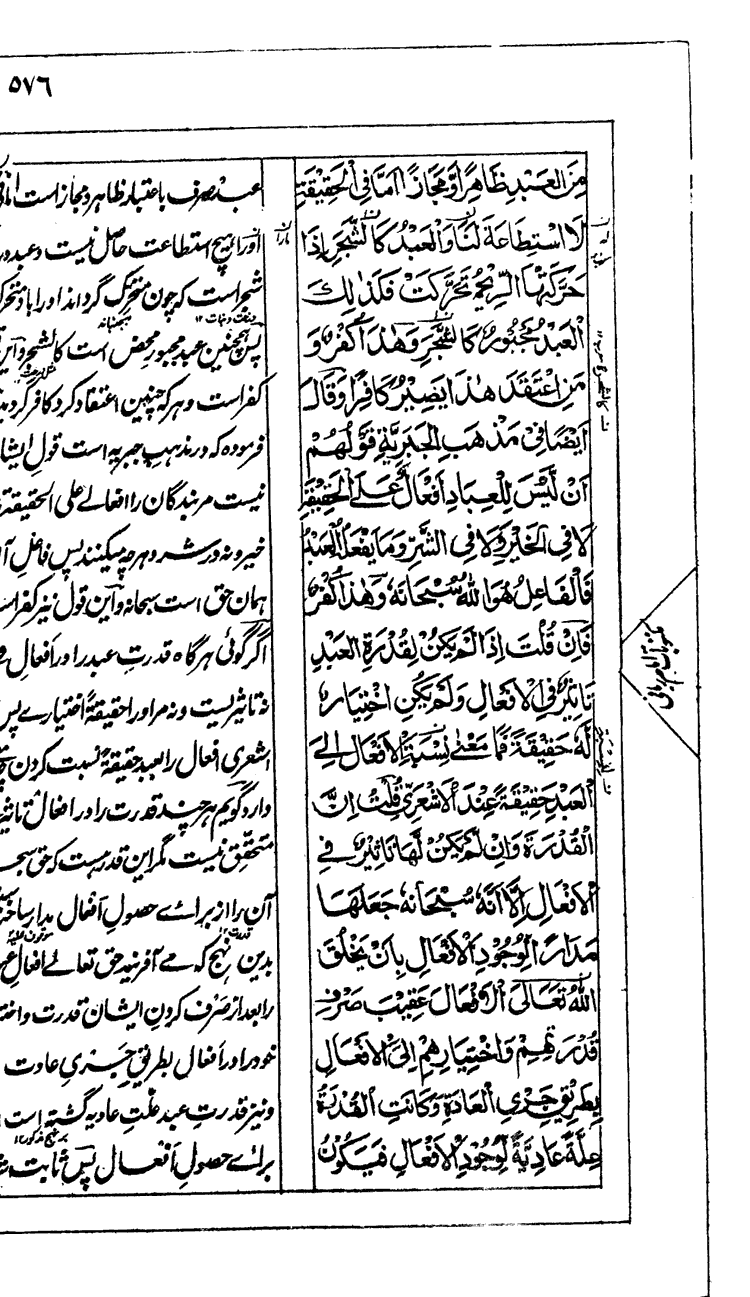 ٥٧٦
مِنَ الْعَبْدِ ظَاهِرًا وَّمَجَازًا اَمَّا فِي الْحَقِيْقَةِ
لَا اسْتِطَاعَةَ لَنَا وَالْعَبْدُ كَالشَّجَرِ اِذَا
حَرَّكَتْهَا الرِّيْحُ تَحَرَّكَتْ فَكَذٰلِكَ
الْعَبْدُ مَجْبُوْرٌ كَالشَّجَرِ وَهٰذَا كُفْرٌ وَ
مَنِ اعْتَقَدَ هٰذَا يَصِيْرُ كَافِرًا وَّقَالَ
اَيْضًا فِيْ مَذْهَبِ الْجَبَرِيَّةِ قَوْلُهُمْ
اَنْ لَّيْسَ لِلْعِبَادِ اَفْعَالٌ عَلَى الْحَقِيْقَةِ
لَا فِي الْخَيْرِ وَلَا فِي الشَّرِّ وَمَا يَفْعَلُ الْعَبْدُ
فَالْفَاعِلُ هُوَ اللّٰهُ سُبْحَانَهٗ وَهٰذَا كُفْرٌ
فَاِنْ قُلْتَ اِذَا لَمْ يَكُنْ لِقُدْرَةِ الْعَبْدِ
تَاثِيْرٌ فِي الْاَفْعَالِ وَلَمْ يَكُنِ اخْتِيَارٌ
لَهٗ حَقِيْقَةً فَمَا مَعْنٰى نِسْبَةِ الْاَفْعَالِ اِلَى
الْعَبْدِ حَقِيْقَةً عِنْدَ الْاَشْعَرِيِّ قُلْتُ اِنَّ
الْقُدْرَةَ وَاِنْ لَّمْ يَكُنْ لَّهَا تَاثِيْرٌ فِي
الْاَفْعَالِ اِلَّا اَنَّهٗ سُبْحَانَهٗ جَعَلَهَا
مَدَارًا لِّوُجُوْدِ الْاَفْعَالِ بِاَنْ يَخْلُقَ
اللّٰهُ تَعَالٰى الْاَفْعَالَ عَقِيْبَ صَرْفِ
قُدْرَتِهِمْ وَاخْتِيَارِهِمْ اِلَى الْاَفْعَالِ
بِطَرِيْقِ جَرْيِ الْعَادَةِ وَكَانَتِ الْقُدْرَةُ
عِلَّةً عَادِيَّةً لِّوُجُوْدِ الْاَفْعَالِ فَيَكُوْنُ
عبد صرف باعتبار ظاهر و مجاز است اما
او را هیچ استطاعت حاصل نیست و عبد
شجر است که چون متحرک گرداند او را باد
پس همچنین عبد مجبور محض است کالشجر و این
کفر است و هر که چنین اعتقاد کرد کافر گردد
فرموده که در مذهب جبریه است قول ایشان
نیست مر بندگان را افعالے علی الحقیقة
خیر و نه در شر و هرچه میکنند پس فاعل
همان حق است سبحانه و این قول نیز کفر است
اگر گوئی هرگاه قدرتِ عبد را در افعالِ
نه تاثیر است و نه مر او را حقیقةً اختیارے پس
اشعری افعال را بعبد حقیقةً نسبت کردن
دارد گویم هرچند قدرت را در افعال تاثیر
متحقق نیست مگر این قدر هست که حق
آن را از برائے حصولِ افعال مدار ساخته
بدین نهج که مے آفریند حق تعالے افعالِ
را بعد از صَرف کردنِ ایشان قدرت و
خود را در افعال بطریقِ جریِ عادت
و نیز قدرتِ عبد علّتِ عادیه گشته است
برائے حصولِ افعال پس ثابت
مکتوبات امام ربانی